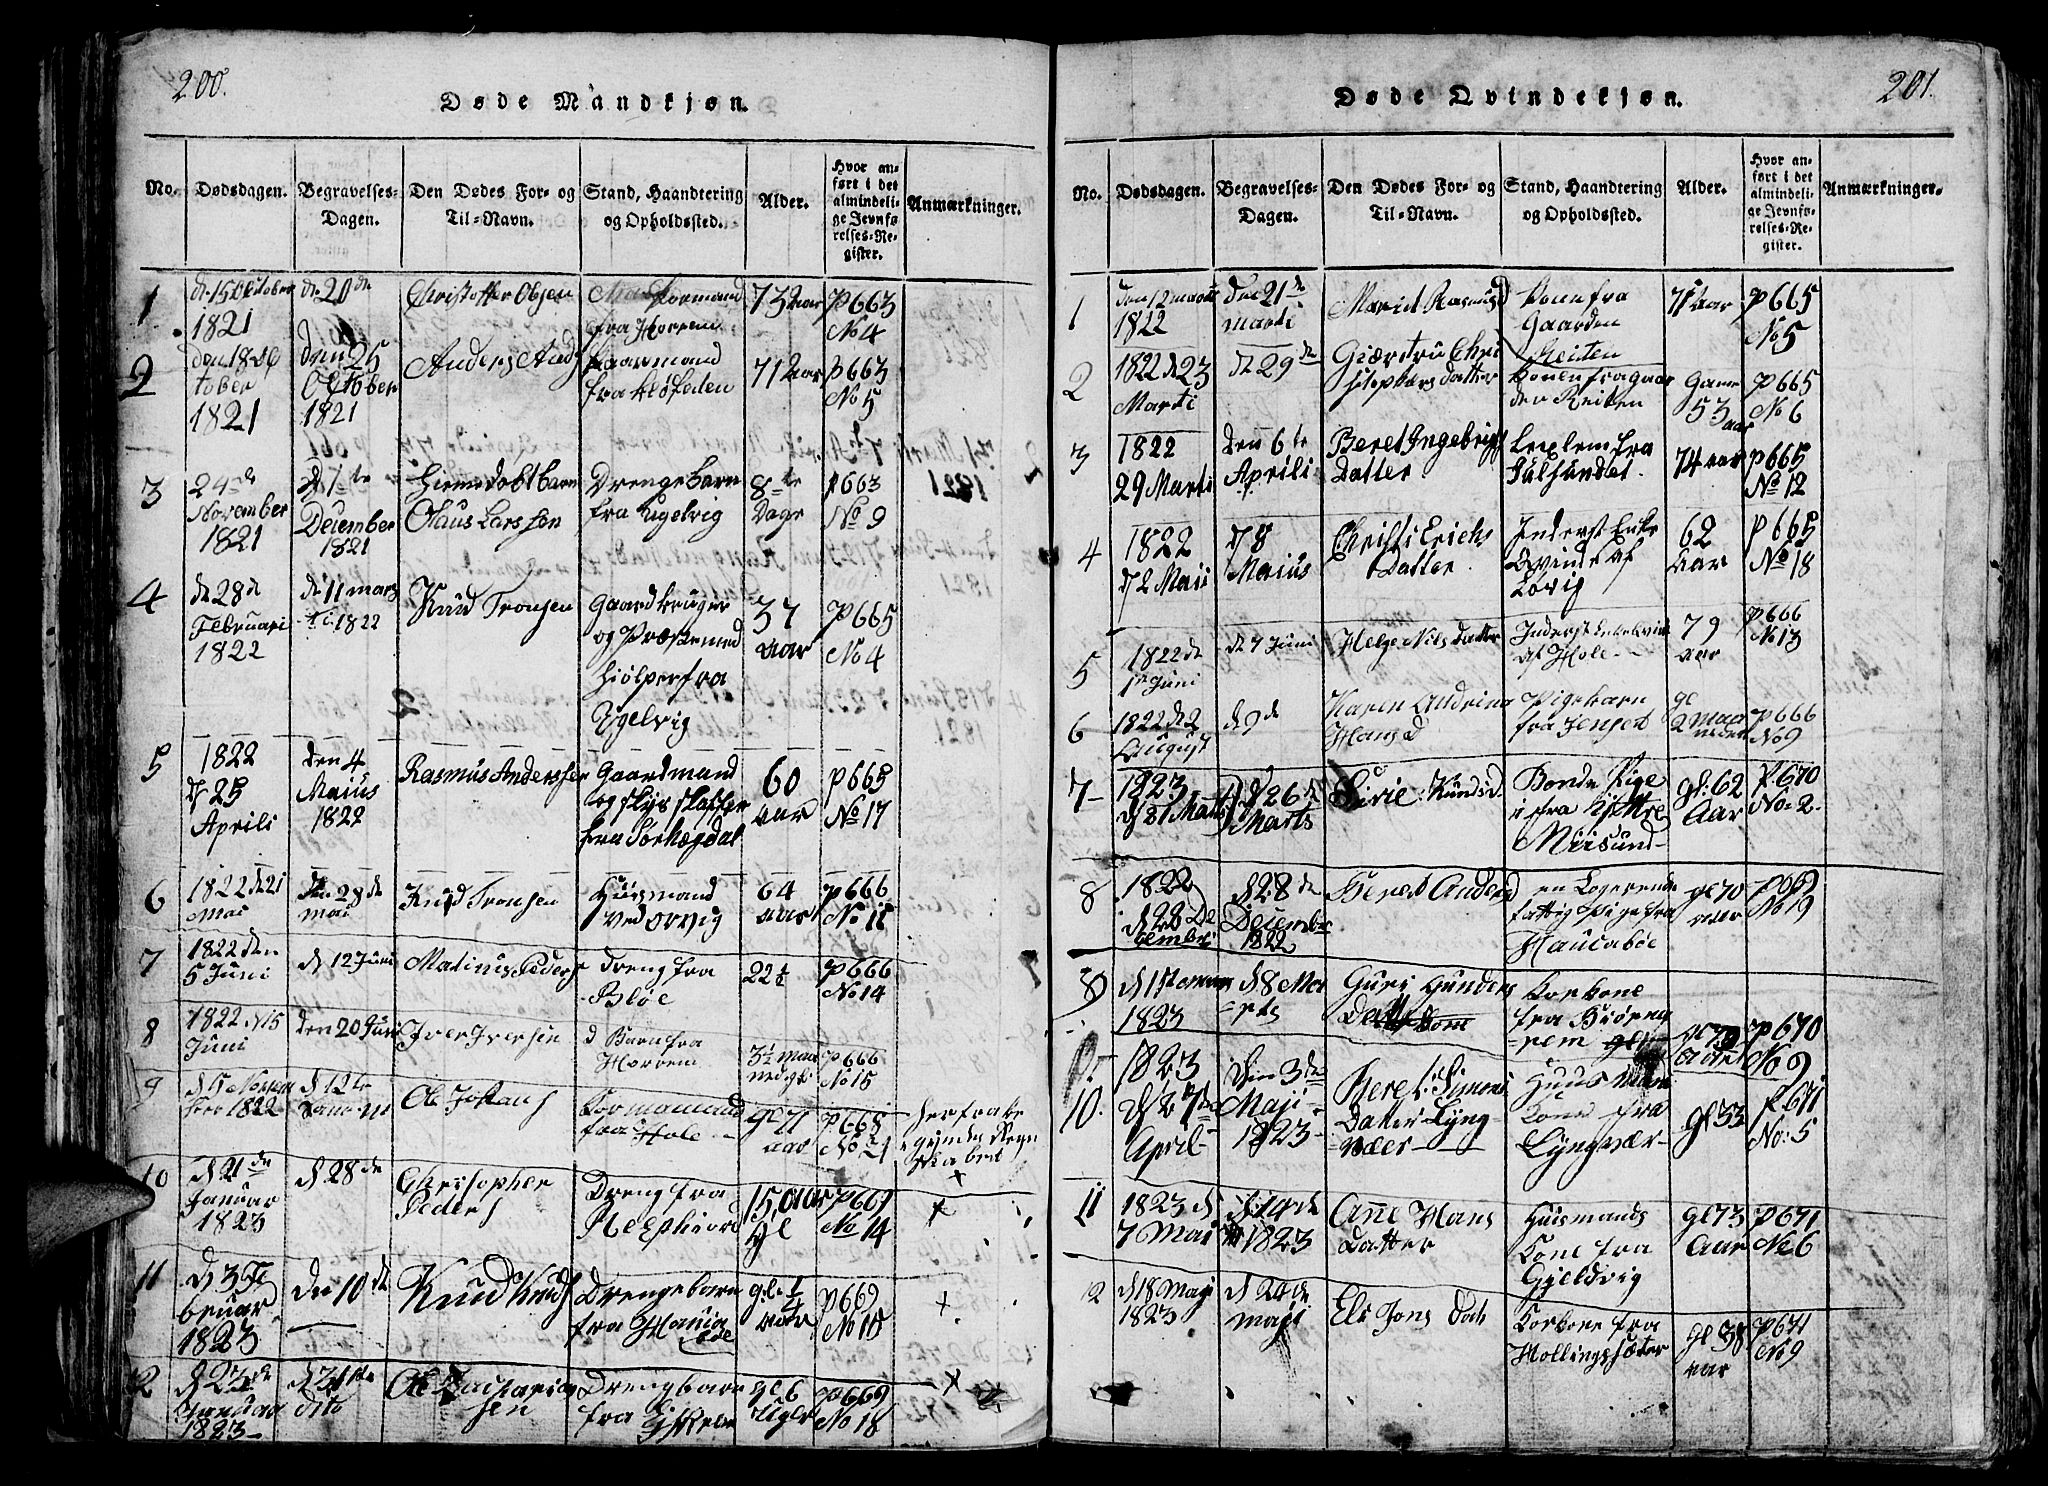 200.
Døde Mandkjøn.
No.
Dødsdagen.
Begravelses-
Dagen.
Den Dødes For- og
Til-Navn.
Stand, Haandtering
og Opholdssted.
Alder.
Hvor an-
ført i det
almindeli-
ge Jevnfø-
relses-Re-
gister.
Anmærkninger.
1
d. 15 October
1821
d. 20 de
Christoffer Olsen
fra Horrem
73 aar
p 663
No 4
2
den 18 Oc
tober
1821
den 25
October
1821
Anders And
Gaarmand
71 aar
p 663
No 5
3
24 de
November
1821
December
1821
Hiemedøbt barn
Olaus Larssen
Drengebarn
fra Ugelvig
8 te
Dage
p 663
No 9
4
d. 28 d
Februari
1822
d. 11 mar
ti 1822
Knud Tronsen
Gaardbruger
og Præstemed
hiolper fra
Ugelvig
37
aar
p 665
No 4
5
1822
d 25
Aprili
den 4
Maius
1822
Rasmus Andersen
Gaardmand
og skyds skaffer
60
aar
p 665
No 17
6
1822 d 21
Mai
den 28 de
mai
Knud Tronsen
Huusmand
ved Orvig
64
aar
p 666
No 11
7
1822 den
5 Juni
d 12 Juni
Matinus Peders
Dreng fra
Bløe
22 ½
p 666
No 14
8
1822
Juni
den 20 Juni
Iver Iversen
Barn fra
Horrem
3½ maa
p 666
No 15
9
1822
Ole Johans
fra Hole
gl 71
aar
p 668
No 21
10
d 21 de
Januar
1823
d 28 de
Christopher
Peders
Dreng fra
15, aar
gl
p 669
No 14
x
11
d 3 Fe
bruar
1823
den 10 de
Knud Knuds
Drengebarn
gl ¼
p 669
x
2
d 23 de
1823
dito
Ole Zacharias
sen
Drengbarn
gl 6
p 669
No 18
x
201.
Døde Qvindekjøn.
No.
Dødsdagen.
Begravelses-
Dagen.
Den Dødes For- og
Til-Navn.
Stand, Haandtering
og Opholdssted.
Alder.
Hvor an-
ført i det
almindeli-
ge Jevnfø-
relses-Re-
gister.
Anmærkninger.
1
den 12 marti
1822
den 21 de
marti
Marit Rasmusd
Kone fra
Gaarden
Reiten
71 aar
p 665
No 5
2
1822 d 23
Marti
d 29 de
Giærtru Chri
stophersdatter
Konen fra gaar
den Reiten
53 aar
p 665
No 6
3
1822
29 Marti
den 6 te
Aprili
Beret Ingebrigts
Datter
Julsundet
74 aar
p 665
No 12
4
1822
d 2 Maii
d 8
Maius
Christi Erichs
Datter
Inderst Enke
Qvinde af
Lovig
62
aar
p 665
No 18
5
1822 de
1 Juni
d 7 Juni
Helge Nils datter
af Hole
79
aar
p 666
No 13
6
1822 d 2
August
d 9 de
Karen Andrina
Hansd
Pigebarn
fra Jenset
gl
2 maa
neder
p 666
No 9
7
1823
d 26
Marts
Sivie Knudsd
Bonde Pige
Meisund
gl: 62
Aar
p. 670
No: 2
8
1822
d 28 De
cember
d 28 de
December
1822
Beret Andersd
en Logerende
fattig Pige fra
Haucabøe
gl 70
aar
p 669
No 19
9
1823
d 8 Ma
rts
Guri Gunders
Datter
fra Biørne
rem
p 670
No 9
10.
1823
April
Den 3 de
Maji
1823
Beret Simons
Datter Lyng
vær
Huus mand
Kone fra
Lyngvær
gl 53
p. 671
No: 5
11
1823 d
7 Mai
d 14 de
1823
Ane Hans
Datter
Huusmands
Kone fra
Gjeldvig
gl 73
Aar
p 671
No 6
2
d 18 Maji
1823
d 24 de
maji
Els Jons Dat
fra
Hollingsæter
gl 38
aar
p 671
No 9